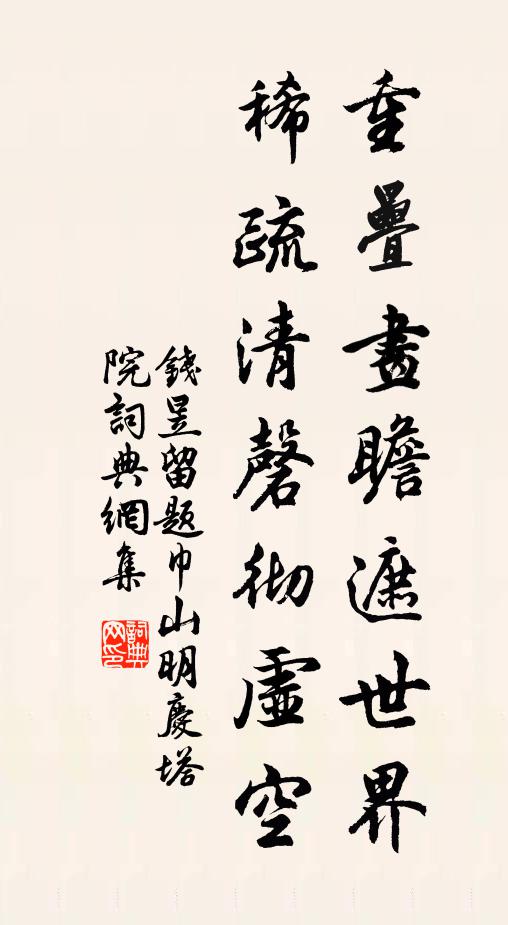 重疊畫瞻遮世界
稀疏清磬彻虛空
錢昱留題巾山明慶塔
院詞典網集
詞典网印